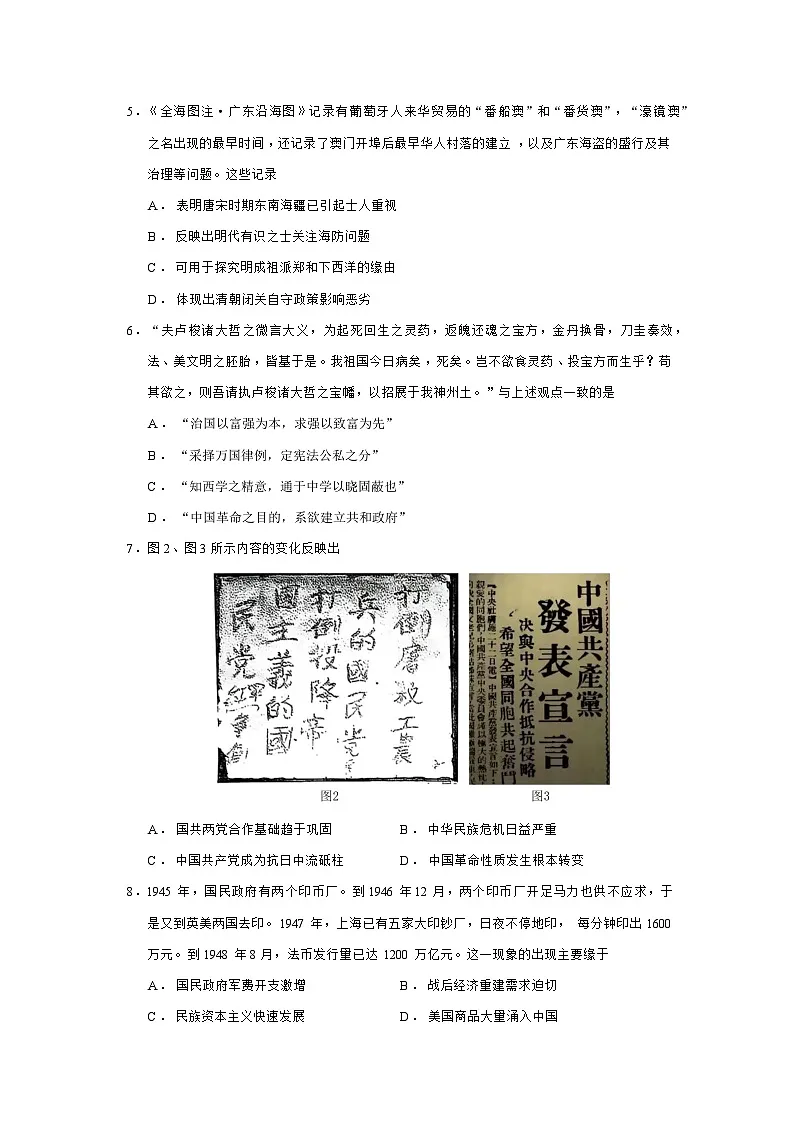 5．《全海图注·广东沿海图》记录有葡萄牙人来华贸易的“番船澳”和“番货澳”，“濠镜澳”
之名出现的最早时间，还记录了澳门开埠后最早华人村落的建立，以及广东海盗的盛行及其
治理等问题。这些记录
A． 表明唐宋时期东南海疆已引起士人重视
B． 反映出明代有识之士关注海防问题
C． 可用于探究明成祖派郑和下西洋的缘由
D． 体现出清朝闭关自守政策影响恶劣
6．“夫卢梭诸大哲之微言大义，为起死回生之灵药，返魄还魂之宝方，金丹换骨，刀圭奏效，
法、美文明之胚胎，皆基于是。我祖国今日病矣，死矣。岂不欲食灵药、投宝方而生乎？苟
其欲之，则吾请执卢梭诸大哲之宝幡，以招展于我神州土。”与上述观点一致的是
A． “治国以富强为本，求强以致富为先”
B． “采择万国律例，定宪法公私之分”
C． “知西学之精意，通于中学以晓固蔽也”
D． “中国革命之目的，系欲建立共和政府”
7．图 2、图 3 所示内容的变化反映出
打倒屠殺工農
兵的國民党
打倒投降帝
國主義的國
民党
中國共產黨
發表宣言
决與中央合作抵抗侵略
希望全國同胞共起奮鬥
图2
图3
A． 国共两党合作基础趋于巩固 B． 中华民族危机日益严重
C． 中国共产党成为抗日中流砥柱 D． 中国革命性质发生根本转变
8．1945 年，国民政府有两个印币厂。到 1946 年 12 月，两个印币厂开足马力也供不应求，于
是又到英美两国去印。1947 年，上海已有五家大印钞厂，日夜不停地印， 每分钟印出 1600
万元。到 1948 年 8 月，法币发行量已达 1200 万亿元。这一现象的出现主要缘于
A． 国民政府军费开支激增 B． 战后经济重建需求迫切
C． 民族资本主义快速发展 D． 美国商品大量涌入中国